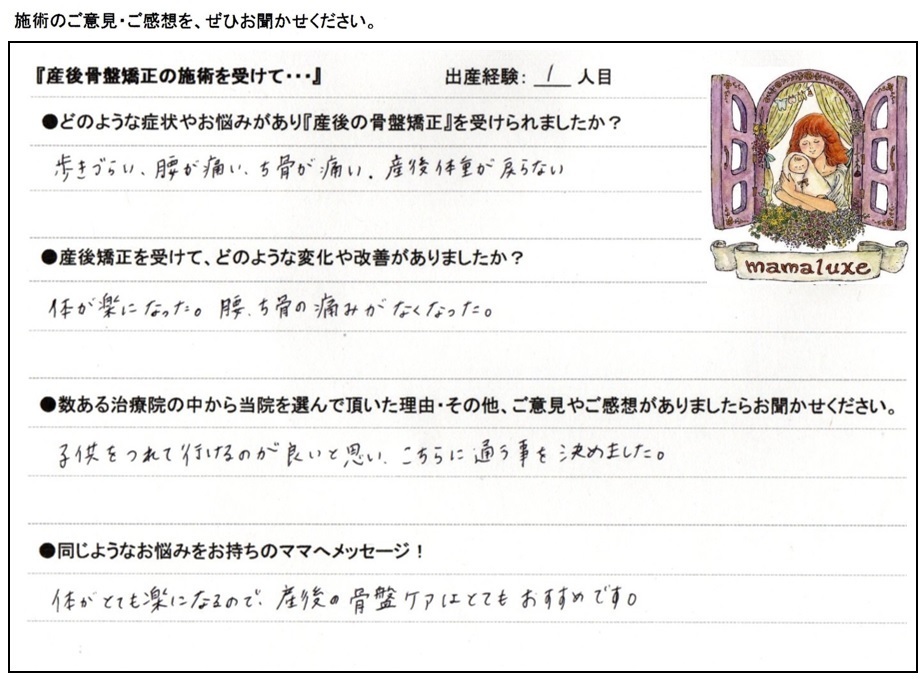 施術のご意見・ご感想を、ぜひお聞かせください。
『産後骨盤矯正の施術を受けて・・・』 出産経験: 1 人目
●どのような症状やお悩みがあり『産後の骨盤矯正』を受けられましたか？
歩きづらい、腰が痛い、ち骨が痛い、産後体重が戻らない
●産後矯正を受けて、どのような変化や改善がありましたか？
体が楽になった。腰、ち骨の痛みがなくなった。
mamaluxe
●数ある治療院の中から当院を選んで頂いた理由・その他、ご意見やご感想がありましたらお聞かせください。
子供をつれて行けるのが良いと思い、こちらに通う事を決めました。
●同じようなお悩みをお持ちのママへメッセージ！
体がとても楽になるので、産後の骨盤ケアはとてもおすすめです。